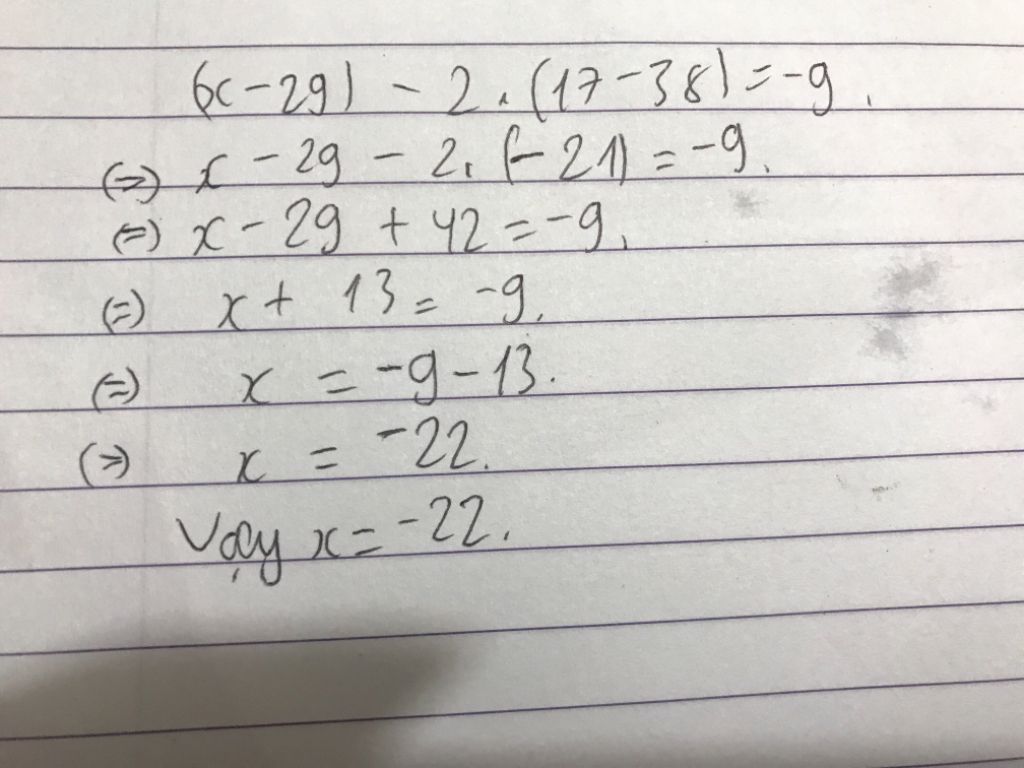 (x - 29) - 2. (17 - 38) = -9.
(=) x - 29 - 2. (- 21) = -9.
(=) x - 29 + 42 = -9.
(=) x + 13 = -9.
(=) x = -9 - 13.
(=) x = -22.
Vậy x = -22.